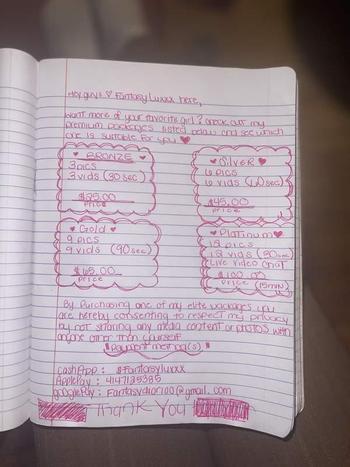 Hey guys ♡ Fantasy Luxxx here,
want more of your favorite girl? Check out my
premium packages listed below and see which
one is suitable for you ♥
♥ BRONZE ♥
3 pics
3 vids (30 sec)
$25.00
Price
♥ Silver ♥
6 pics
6 vids (60 sec)
$45.00
Price
♥ Gold ♥
9 pics
9 vids (90 sec)
$65.00
Price
♥ Platinum ♥
12 vids (90 sec)
Live video chat
$100.00
Price (15min)
By Purchasing one of my elite packages you
are hereby consenting to respect my privacy
by not sharing any media content or photos with
anyone other than yourself
Payment method(s)
cash App: $Fantasyluxxx
ApplePay:
googlePay:
Thank You